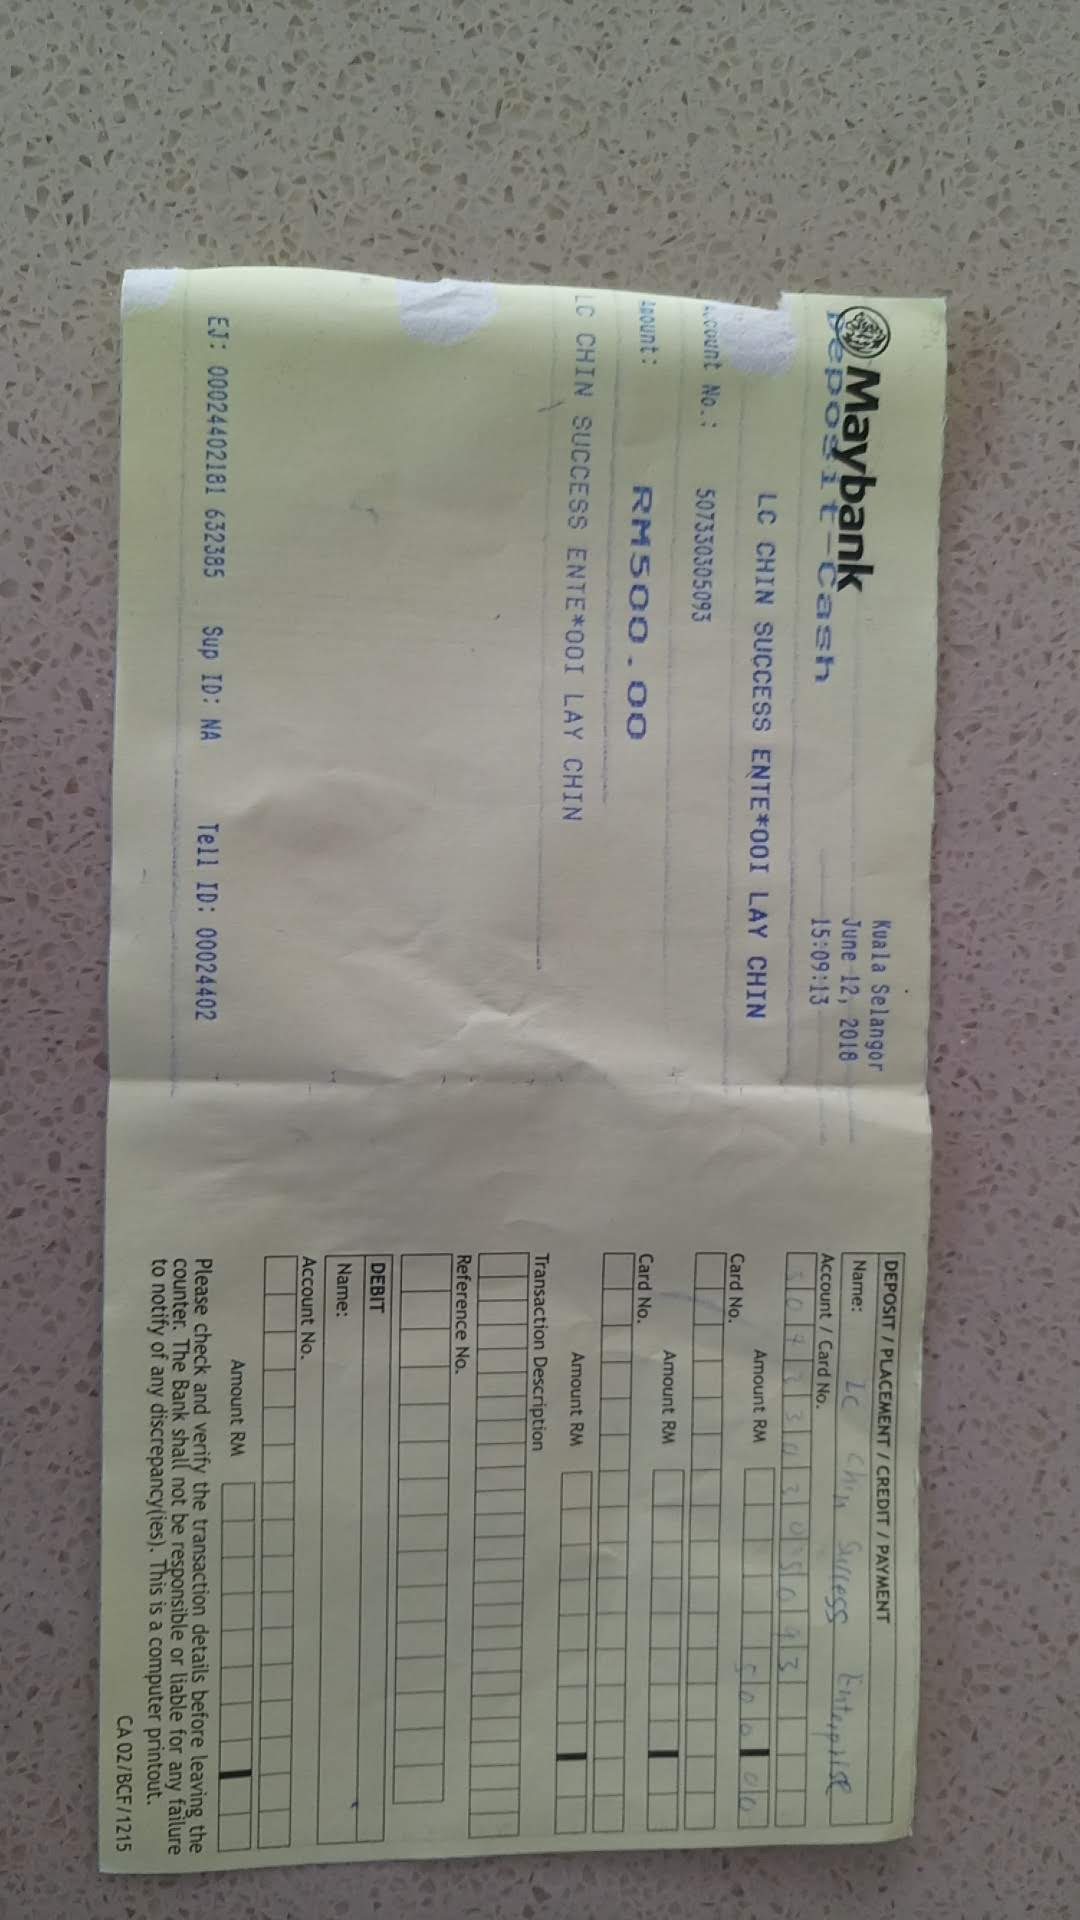 Maybank
Deposit-Cash
Kuala Selangor
June 12, 2018
15:09:13
LC CHIN SUCCESS ENTE*OOI LAY CHIN
count No.: 507330305093
mount: RM500.00
LC CHIN SUCCESS ENTE*OOI LAY CHIN
EJ: 00024402181 632385 Sup ID: NA Tell ID: 00024402
DEPOSIT / PLACEMENT / CREDIT / PAYMENT
Name: LC Chin Success Enterprise
Account / Card No.
Amount RM 500 00
Card No.
Amount RM
Card No.
Amount RM
Transaction Description
Reference No.
DEBIT
Name:
Account No.
Amount RM
Please check and verify the transaction details before leaving the
counter. The Bank shall not be responsible or liable for any failure
to notify of any discrepancy(ies). This is a computer printout.
CA 02/BCF/1215